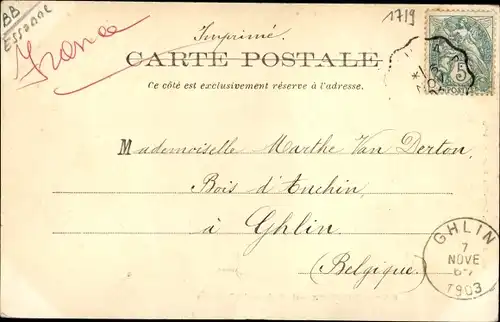 BB
ESSONNE
France
1719
Imprimé.
CARTE POSTALE
Ce côté est exclusivement réservé à l'adresse.
5
Mademoiselle Marthe Van Derton
Bois d'Enchin
à Ghlin
(Belgique)
GHLIN
7
NOVE
6-7
1903